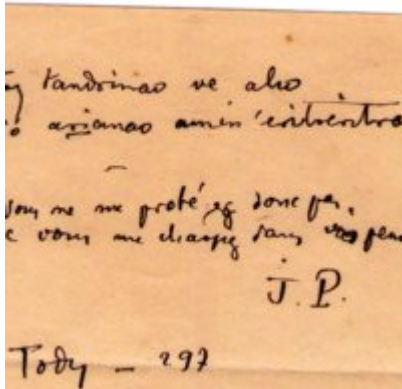 tandrinao ve aho
arianao amin'eritreritra
vous ne me protégez donc pas,
vous me chassez sans
J. P.
Tody - 297